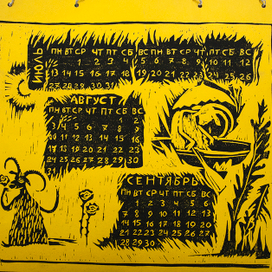 ИЮЛЬ
ПН ВТ СР ЧТ ПТ СБ ВС ПН ВТ СР ЧТ ПТ СБ ВС
1 2 3 4 5 6 7 8 9 10 11 12
13 14 15 16 17 18 19 20 21 22 23 24 25 26
27 28 29 30 31
АВГУСТ
ПН ВТ СР ЧТ ПТ СБ ВС
1 2
3 4 5 6 7 8 9
10 11 12 13 14 15 16
17 18 19 20 21 22 23
24 25 26 27 28 29 30
31
СЕНТЯБРЬ
ПН ВТ СР ЧТ ПТ СБ ВС
1 2 3 4 5 6
7 8 9 10 11 12 13
14 15 16 17 18 19 20
21 22 23 24 25 26 27
28 29 30